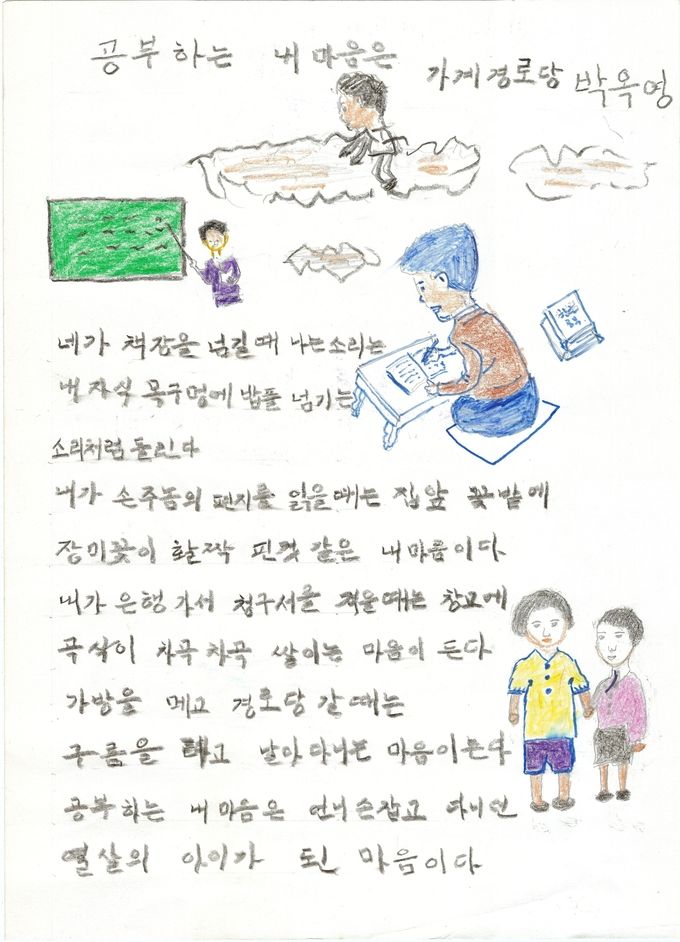 공부하는 내 마음은
가계경로당 박옥영
한글
공부
네가 책장을 넘길때 나는소리는
내 자식 목구멍에 밥풀 넘기는
소리처럼 들린다
내가 손주놈의 편지를 읽을때는 집앞 꽃밭에
장미꽃이 활짝 핀것 같은 내마음이다
내가 은행가서 청구서를 적을때는 창고에
곡식이 차곡차곡 쌀이는 마음이 든다
가방을 메고 경로당 갈때는
구름을 타고 날아다니는 마음이든다
공부하는 내마음은 언니손잡고 다니던
열살의 아이가 된 마음이다